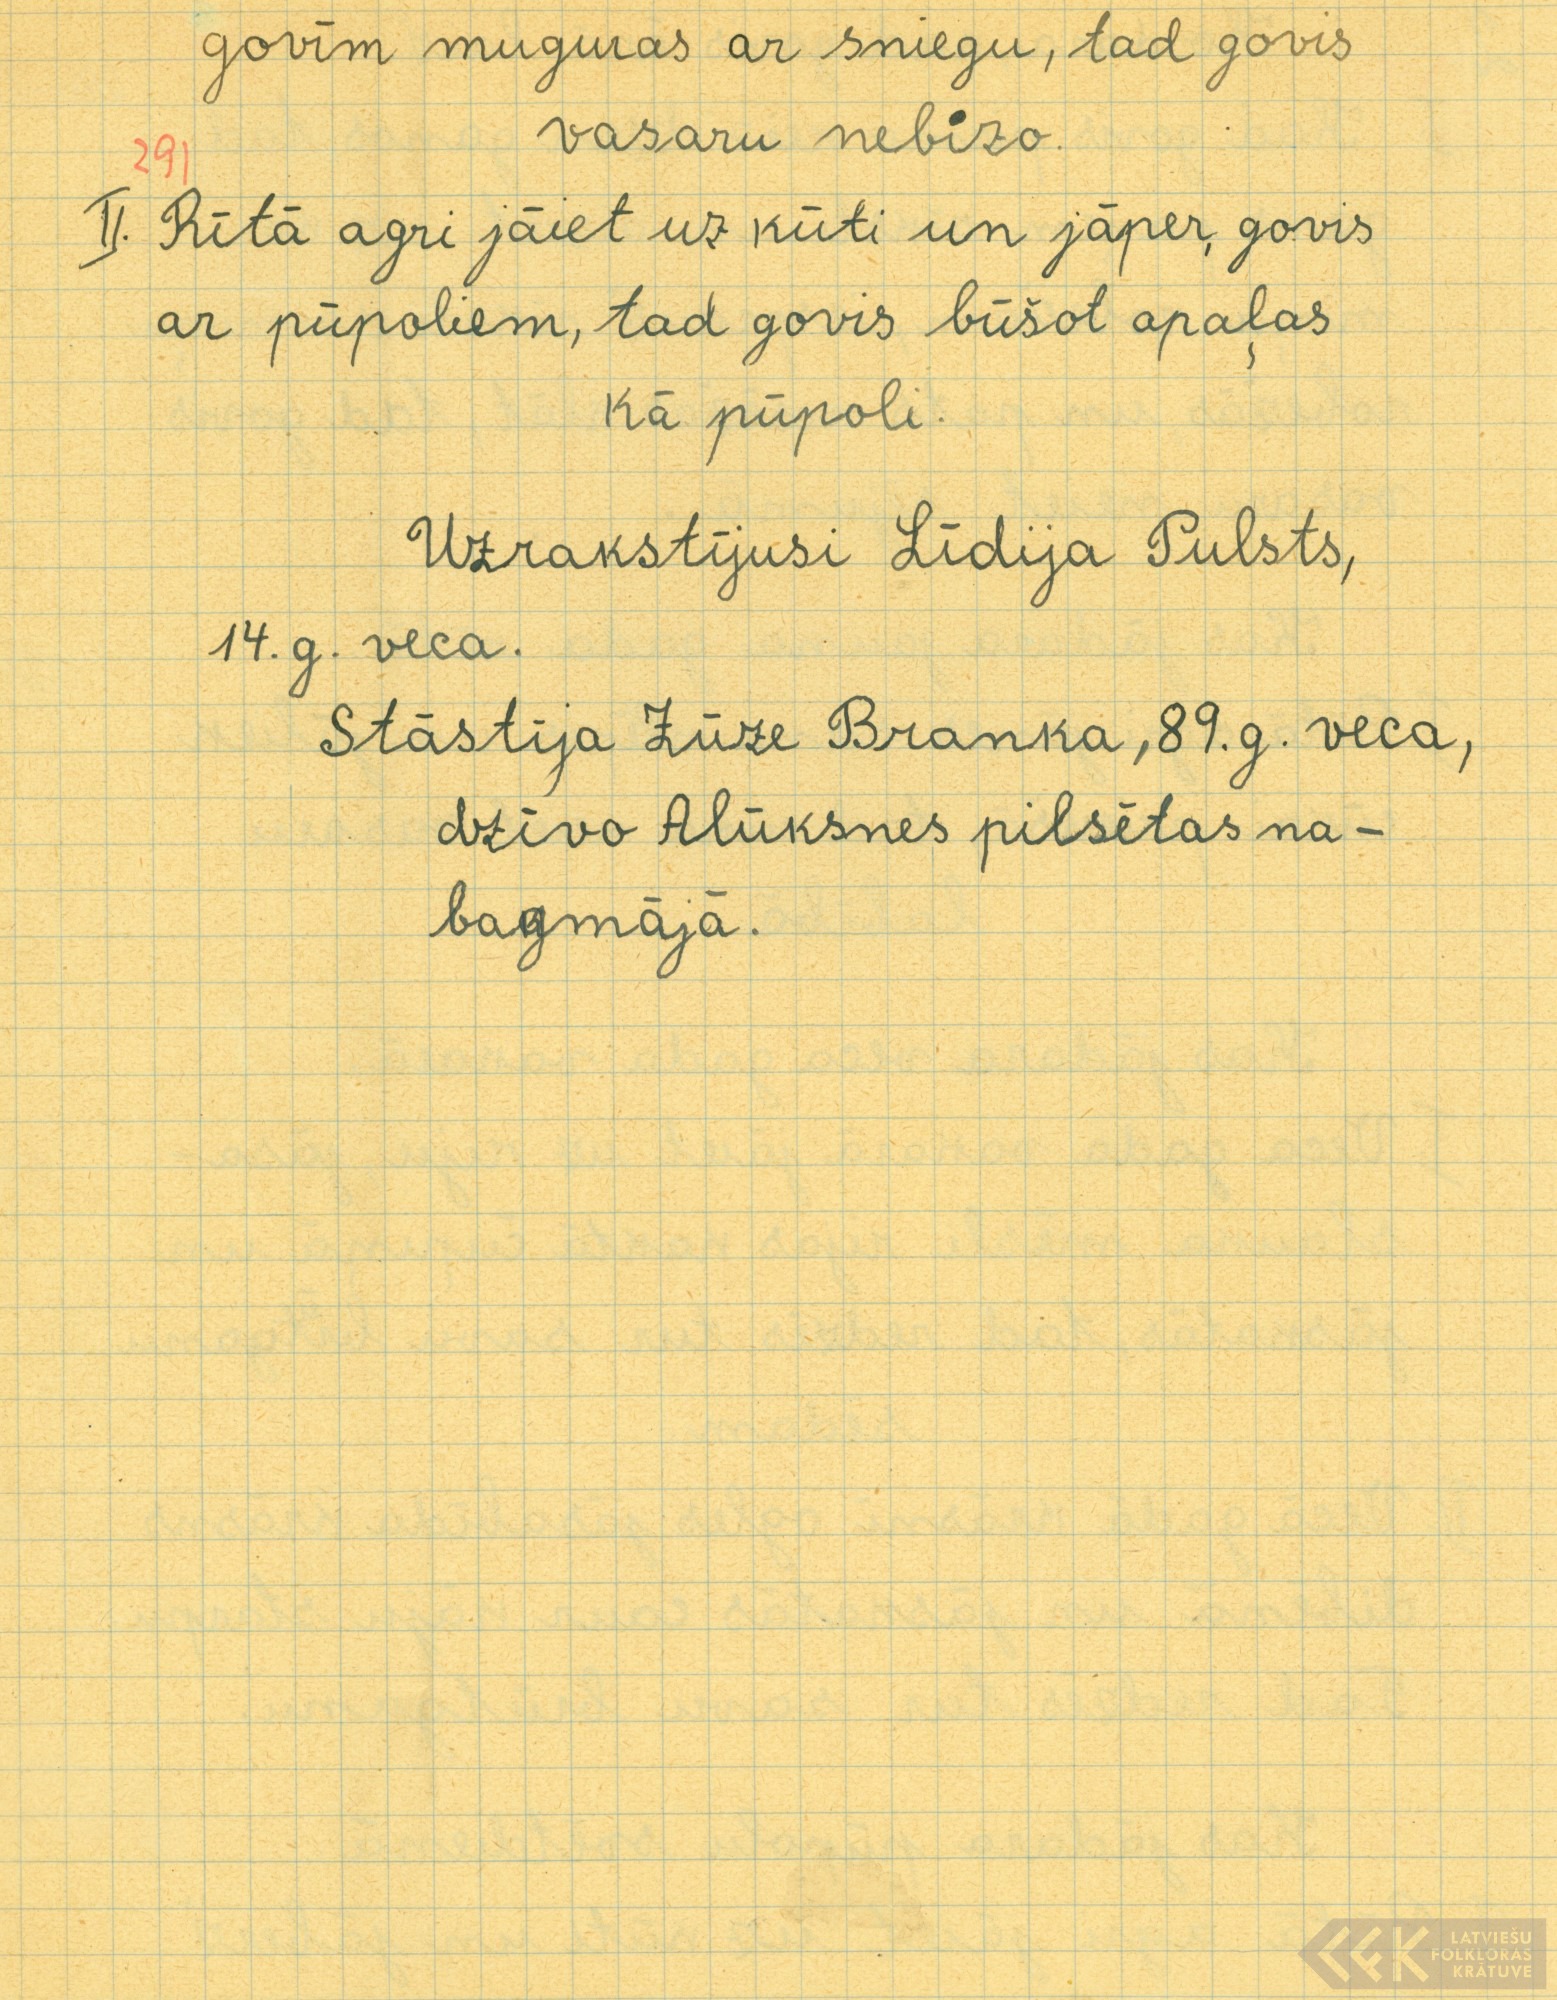 govīm muguras ar sniegu, tad govis
vasaru nebizo.
291
II. Rītā agri jāiet uz kūti un jāper, govis
ar pūpoliem, tad govis būšot apaļas
kā pūpoli.
Uzrakstījusi Līdija Pulsts,
14. g. veca.
Stāstīja Zūze Branka, 89. g. veca,
dzīvo Alūksnes pilsētas na-
bagmājā.
LATVIEŠU
FOLKLORAS
KRĀTUVE